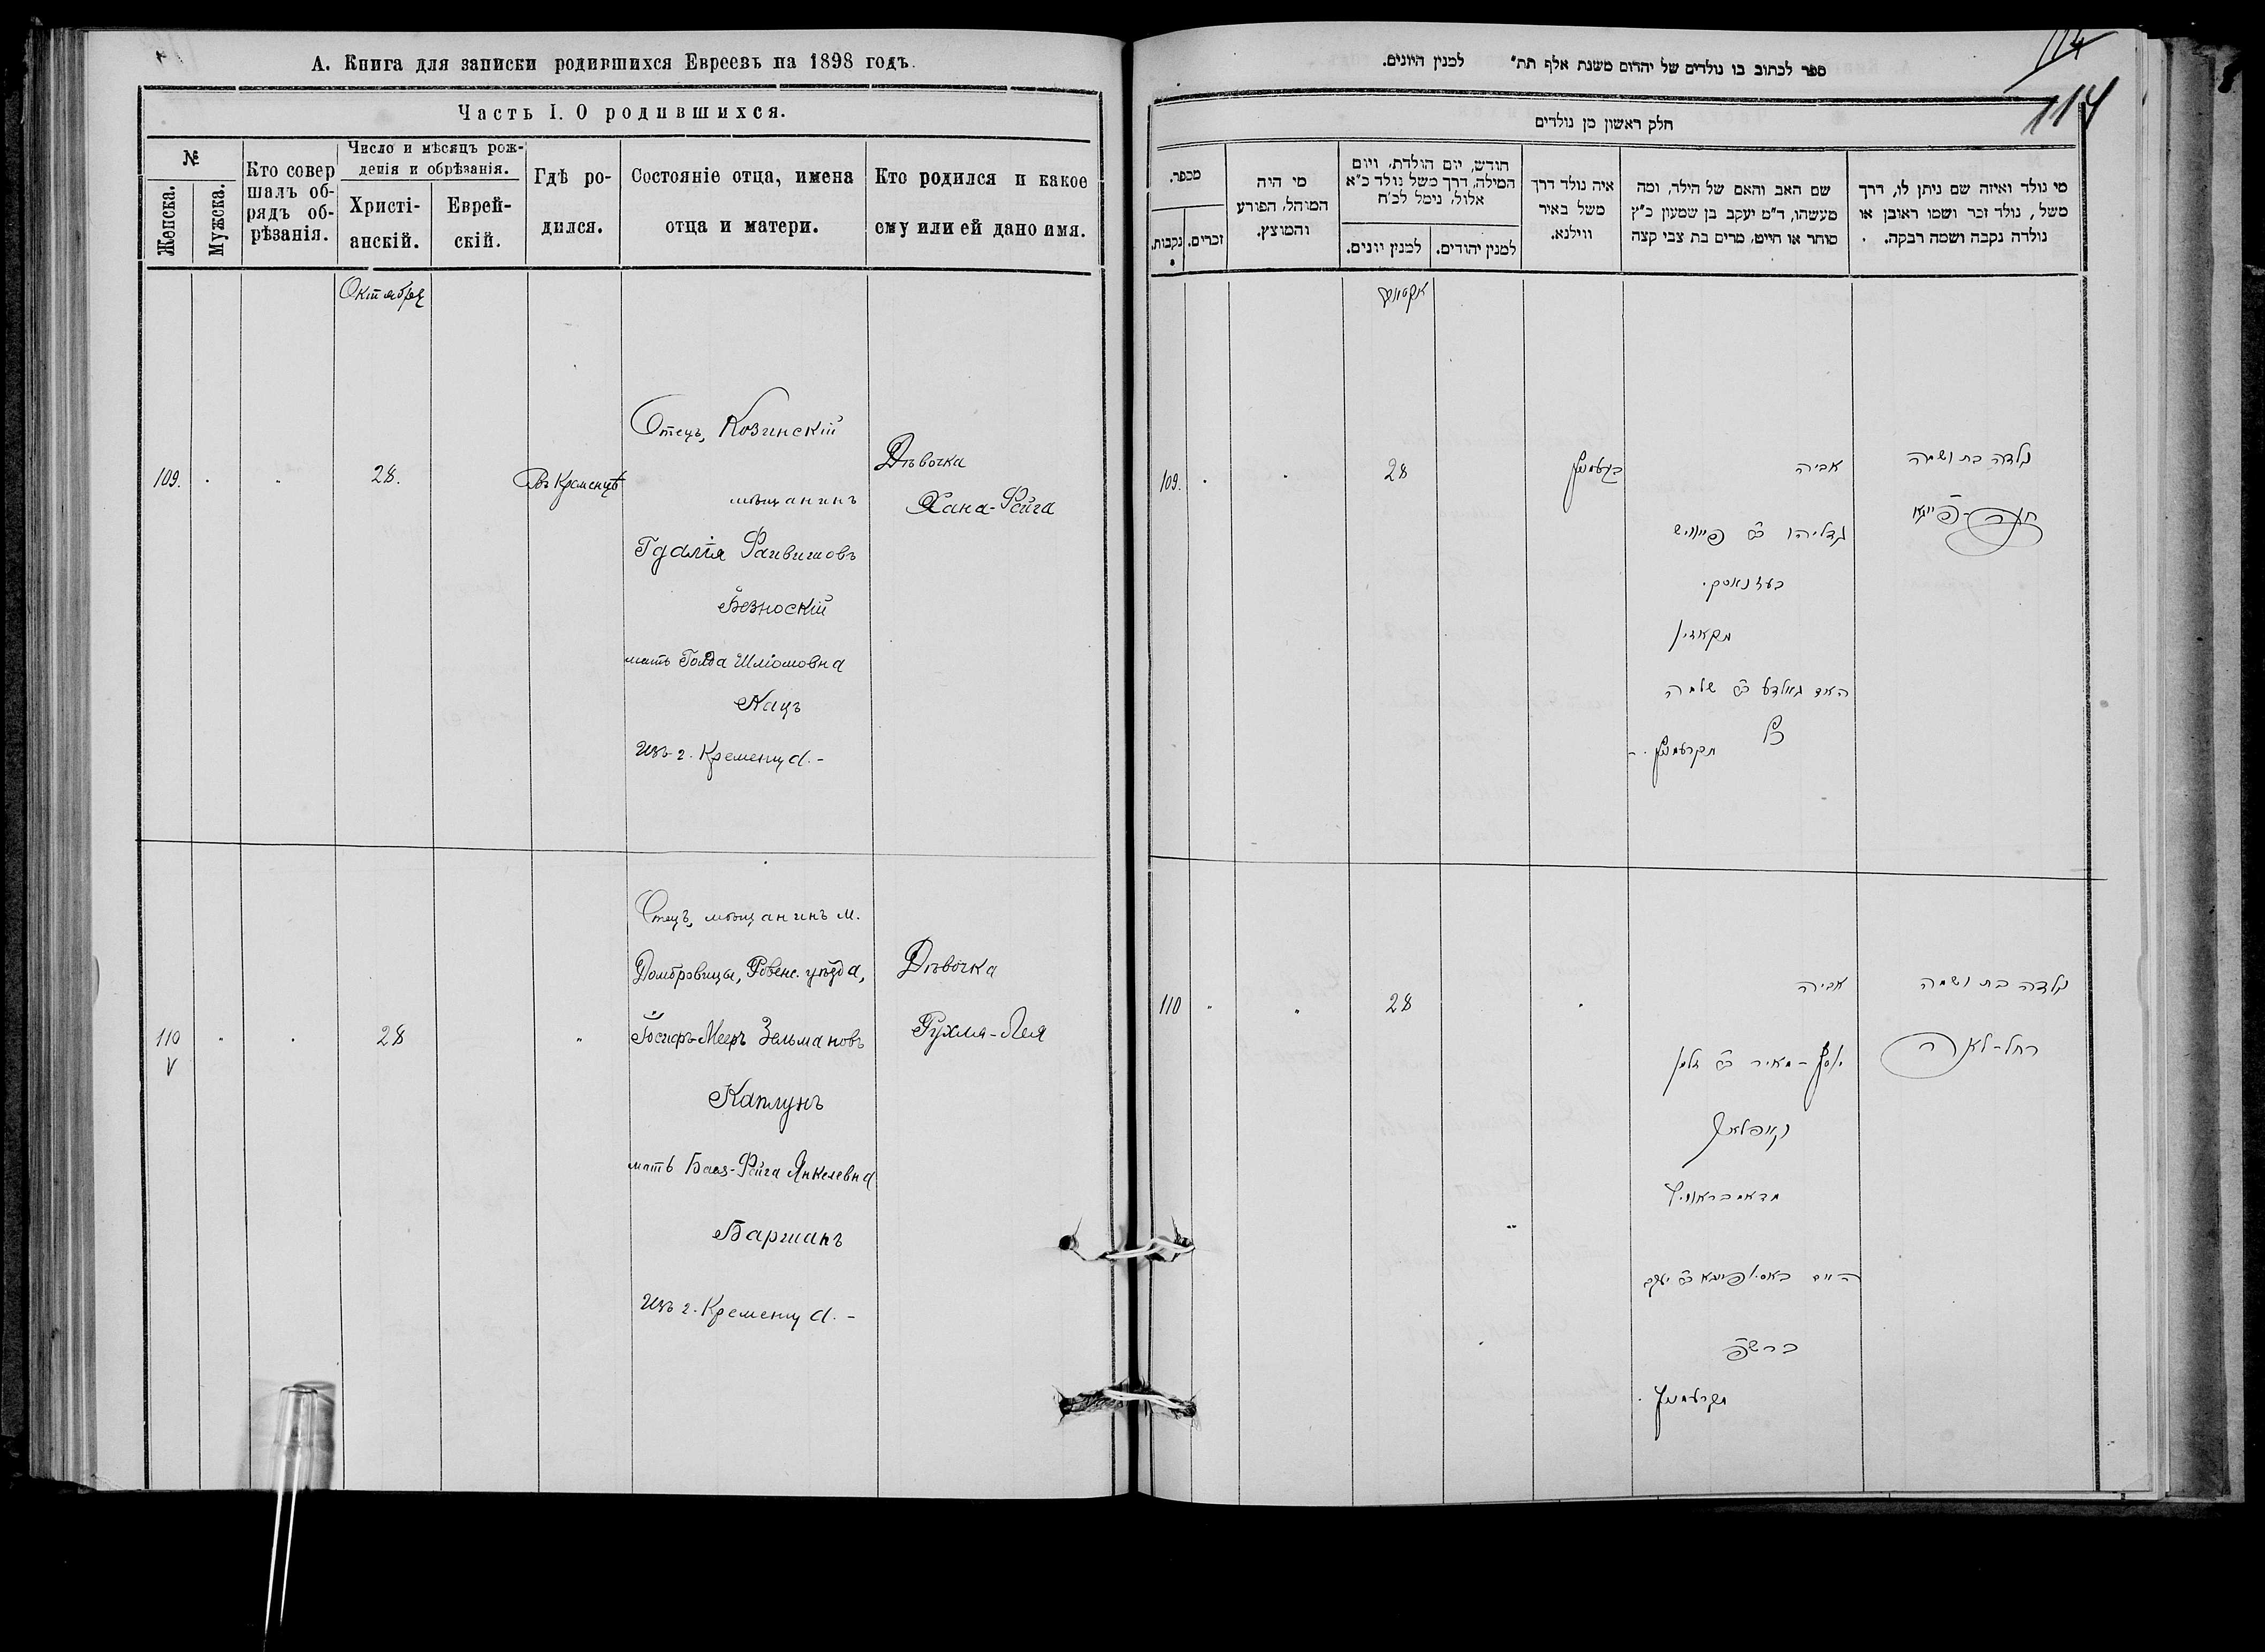 А. Книга для записки родившихся Евреевъ на 1898 годъ.
Часть I. О родившихся.
№
Женска.
Мужска.
Кто совер
шалъ об-
рядъ об-
рѣзанія.
Число и мѣсяцъ рож-
денія и обрѣзанія.
Христі-
анскій.
Еврей-
скій.
Гдѣ ро-
дился.
Состояніе отца, имена
отца и матери.
Кто родился и какое
ему или ей дано имя.
Октября
109.
28.
Въ Кременцѣ
Отецъ, Козинскій
мѣщанинъ
Гдалія Файвишовъ
Безноскій
мать Голда Шліомовна
Кацъ
Изъ г. Кременца. -
Дѣвочка
Хана-Фейга
110
V
28
"
Отецъ, мѣщанинъ м.
Домбровицы, Ровенс. уѣзда,
Іосифъ-Мееръ Зельмановъ
Каплунъ
мать Фейга Янкелевна
Баршакъ
Изъ г. Кременца. -
Дѣвочка
Рухля-Лея
114
114
ספר לכתוב בו נולדים של יהדום משנת אלף תת" למנין היונים.
חלק ראשון מן נולדים
מכפר.
נקבות.
זכרים.
מי היה
המוהל, הפורע
והמוצץ.
חודש, יום הולדת, ויום
המילה, דרך משל נולד כ"א
אלול, נימל לכ"ח
למנין יונים.
למנין יהודים.
איה נולד דרך
משל באיר
ווילנא.
שם האב והאם של הילד, ומה
מעשהו, ד"מ יעקב בן שמעון כ"ץ
סוחר או חייט, מרים בת צבי קצה
מי נולד ואיזה שם ניתן לו, דרך
משל, נולד זכר ושמו ראובן או
נולדה נקבה ושמה רבקה.
109.
28
אביה
גדליהו ב"ר פייוויש
בעזנאסקי
מקאזין
האם גאלדע ב"ר שלמה
כץ
מקרעמניץ. -
נולדה בת ושמה
חנה-פייגא
110
28
אביה
יוסף-מאיר ב"ר זלמן
קאפלאן
מדאמבראוויץ
ב"ר יעקב
ברשק
מקרעמניץ.
נולדה בת ושמה
רחל-לאה